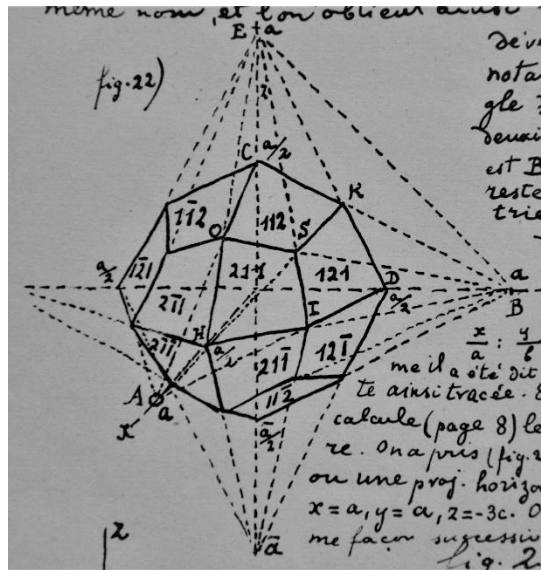 même nom, et l'on obtient ainsi
E a
fig. 22)
a/2
C
K
112̄
O
112
S
a/2
11̄2
1̄21
211
121
D
a
B
a/2
21̄1
H
I
a/2
211̄
121̄
A
a
x
112̄
ā/2
ā
z
déve
nota
gle
deuxi
est B
reste
trie
x/a : y/b
me il a été dit
te ainsi tracée.
calcule (page 8) le
re. On a pris (fig. 2
ou une proj. horizo
x = a, y = a, z = -3c. O
me façon successiv
fig. 2